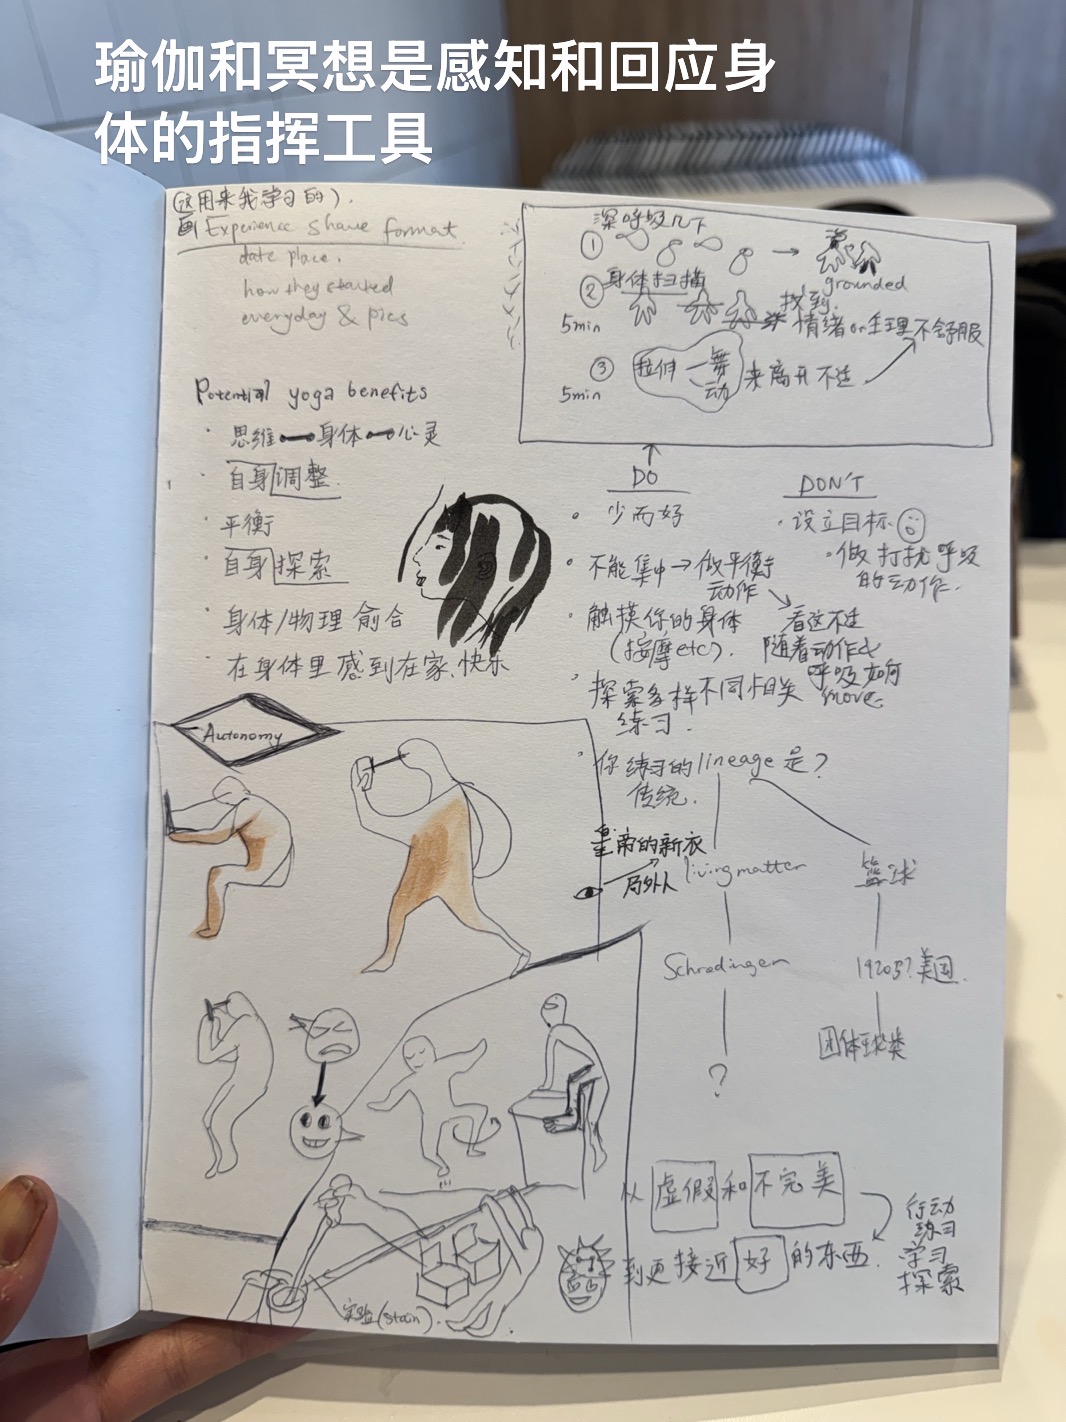 瑜伽和冥想是感知和回应身
体的指挥工具
(这用来我学习的).
画 Experience share format
date place.
how they started
everyday & pics
Potential yoga benefits
· 思维 身体 心灵
· 自身调整
· 平衡
· 自身探索
· 身体/物理 愈合
· 在身体里感到在家、快乐
Autonomy
深呼吸几下
① → grounded
② 身体扫描
5min
找到
情绪 or 生理不舒服
③ 拉伸 一 舞动 来离开不适
5min
DO
· 少而好
· 不能集中→做平衡
动作
· 触摸你的身体
(按摩etc).
看这不适
随着动作&
呼吸如何
move.
· 探索多样不同相关
练习.
· 你练习的lineage是?
传统.
DON'T
· 设立目标
· 做打扰呼吸
的动作.
皇帝的新衣
局外人
living matter
篮球
Schrodinger
1920s? 美国.
?
团体球类
从虚假和不完美
到更接近好的东西.
行动
练习
学习
探索
实验(stain).